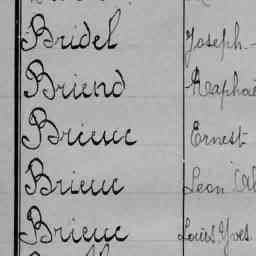 Bridel Joseph
Briend Rapha
Brieuc Ernest
Brieuc Léon
Brieuc Louis Yves